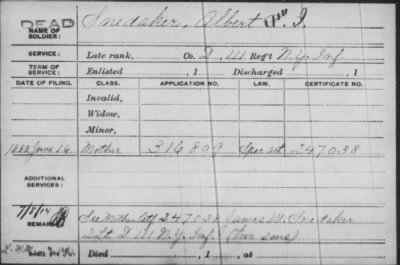 DEAD Snedaker, Albert P. I.
NAME OF SOLDIER:
SERVICE: Late rank, Co. D, 111 Reg't N.Y. Inf.
TERM OF SERVICE: Enlisted , 1 Discharged , 1
DATE OF FILING. CLASS. APPLICATION NO. LAW. CERTIFICATE NO.
Invalid,
Widow,
Minor,
1888 June 16 Mother 316899 Spec act 247038
ADDITIONAL SERVICES:
7/5/14
REMARKS: See Mother Ctf 247038 James M. Snedaker
2 Lt. D 111 N.Y. Inf. (two sons)
Died , 1 , at